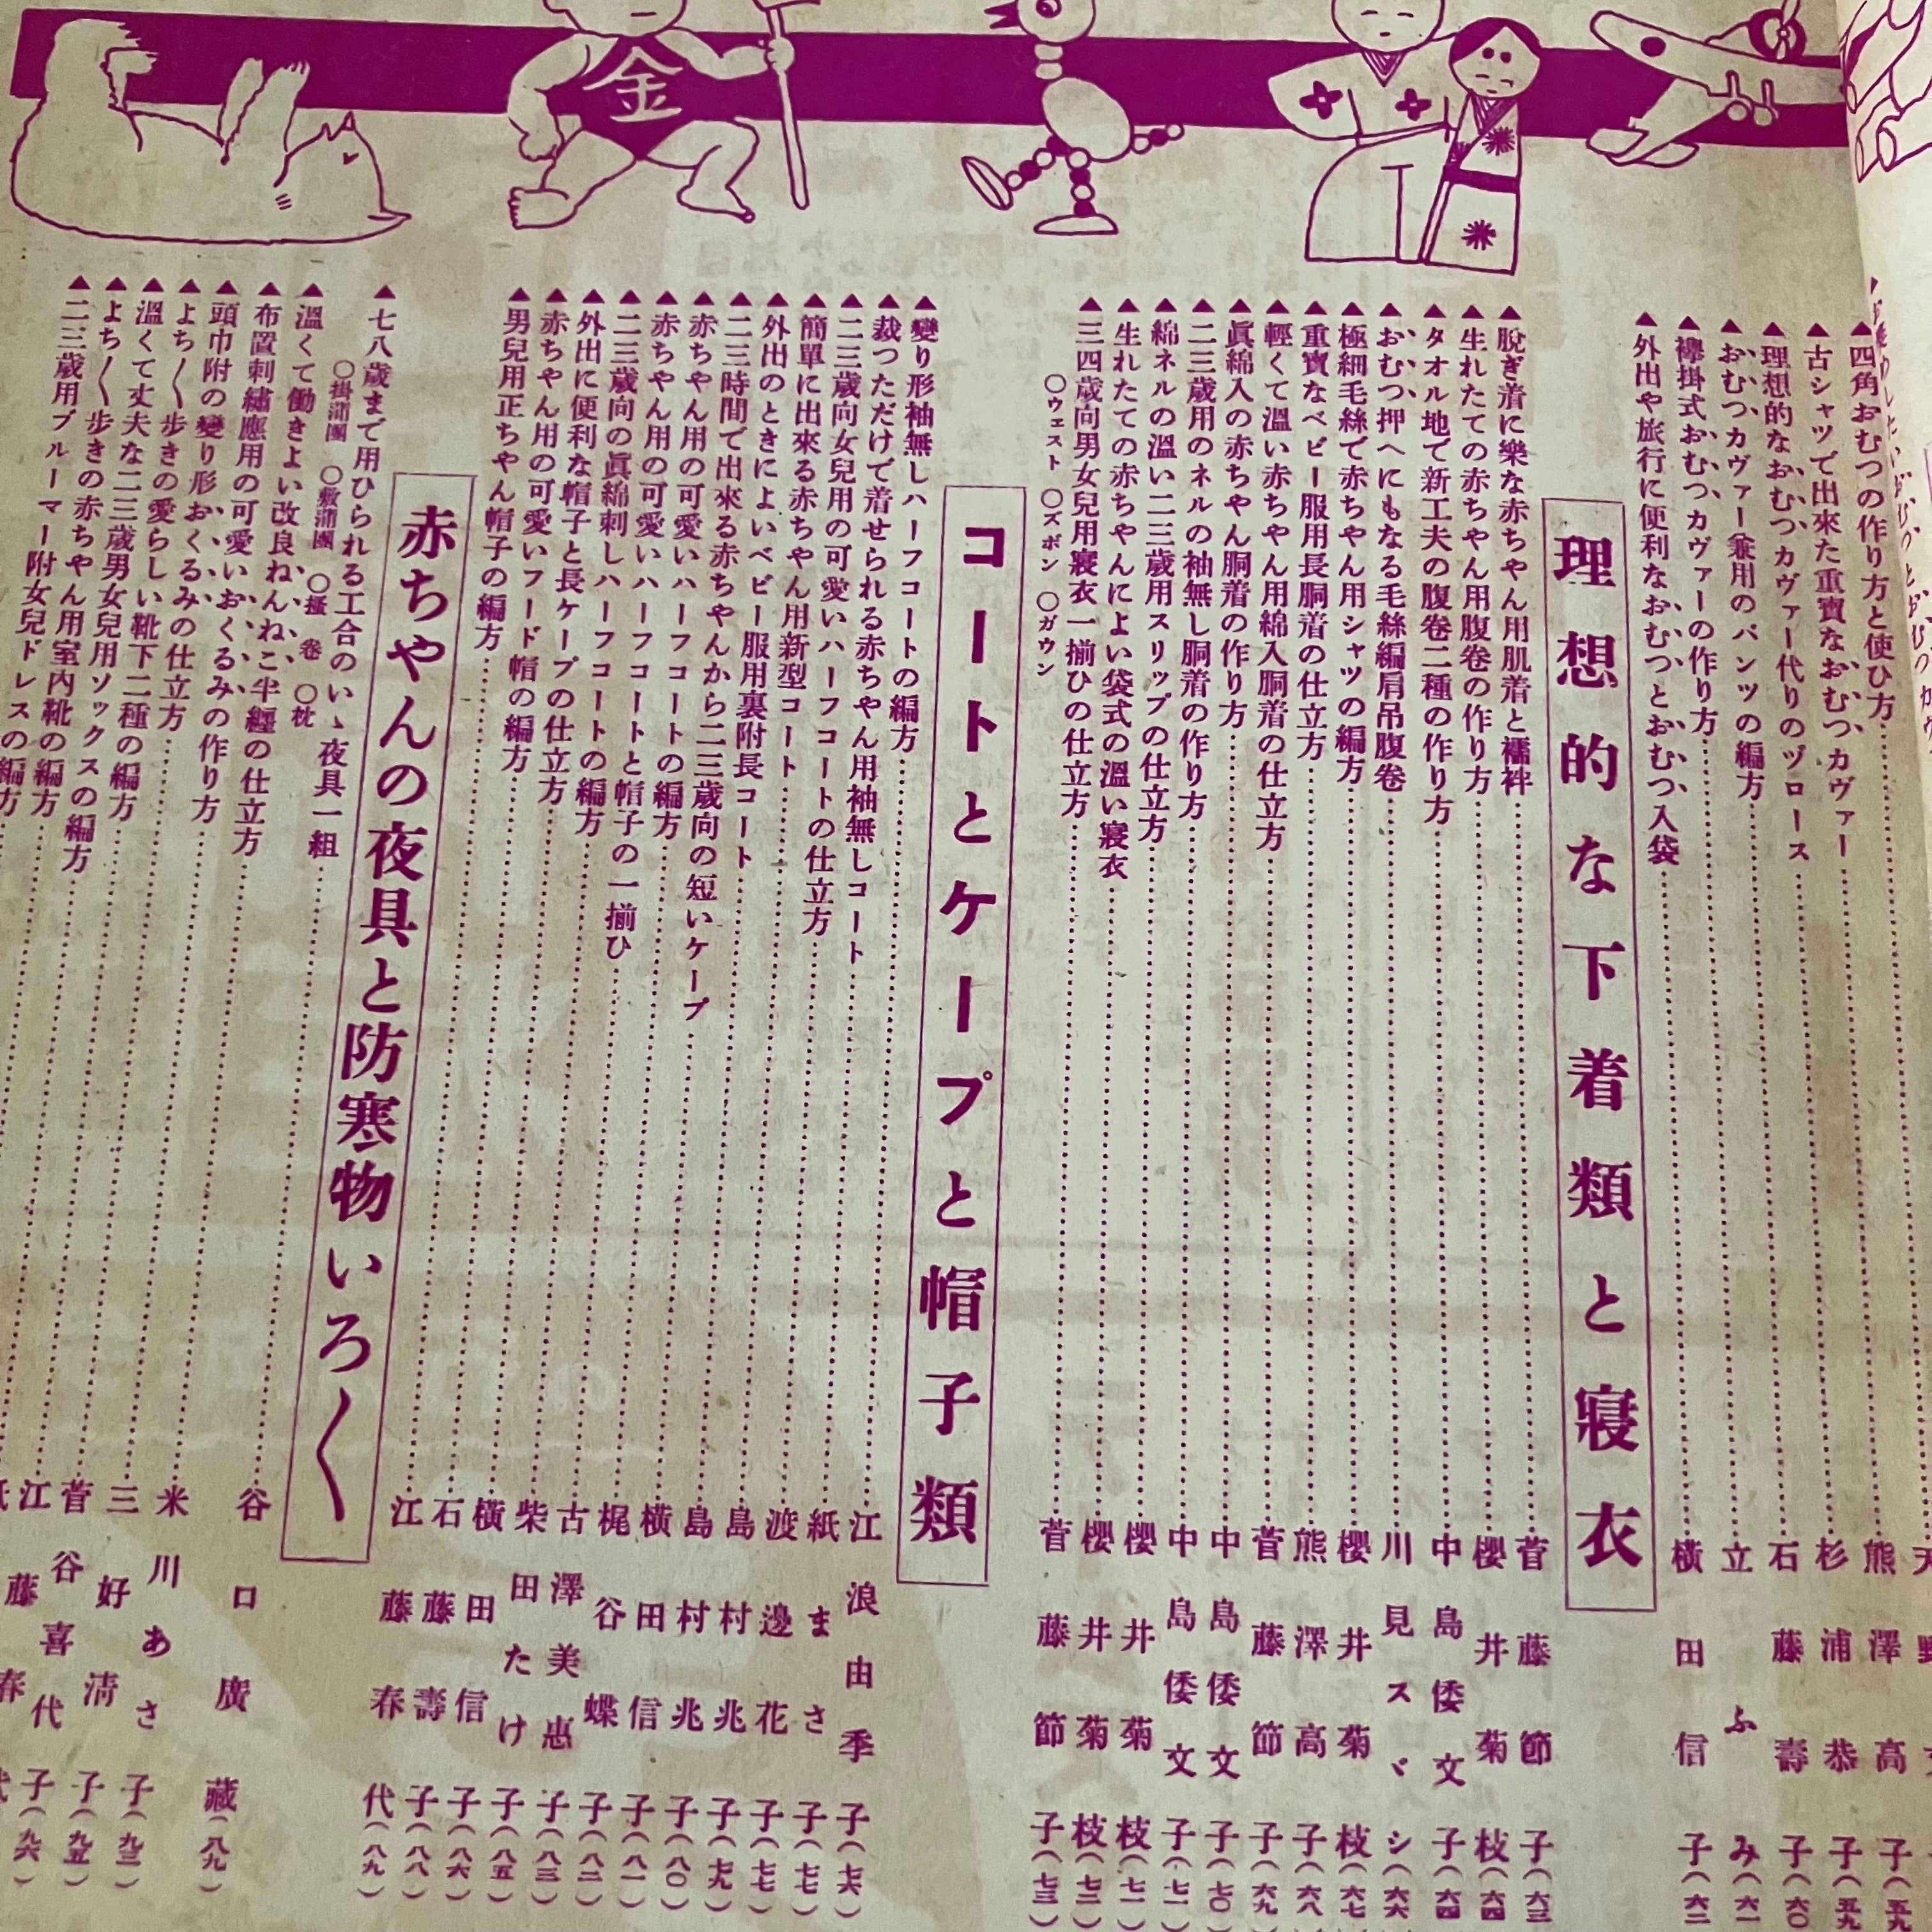 金
▲四角おむつの作り方と使ひ方……熊澤高子(五九
▲古シャツで出來た重寶なおむつカヴァー……杉浦恭子(五九
▲理想的なおむつカヴァー代りのヅロース……石藤壽子(六〇
▲おむつカヴァー兼用のパンツの編方……立ふみ(六一
▲襷掛式おむつカヴァーの作り方……横田信子(六二
▲外出や旅行に便利なおむつとおむつ入袋
理想的な下着類と寢衣
▲脱ぎ着に樂な赤ちやん用肌着と襦袢……菅藤節子(六三
▲生れたての赤ちやん用腹卷の作り方……櫻井菊枝(六四
▲タオル地で新工夫の腹卷二種の作り方……中島倭文子(六四
▲おむつ押へにもなる毛絲編肩吊腹卷……川見スヾシ(六六
▲極細毛絲で赤ちやん用シャツの編方……櫻井菊枝(六七
▲重寶なベビー服用長胴着の仕立方……熊澤高子(六八
▲輕くて溫い赤ちやん用綿入胴着の仕立方……菅藤節子(六九
▲眞綿入の赤ちやん胴着の作り方……中島倭文子(七〇
▲二三歳用のネルの袖無し胴着の作り方……中島倭文子(七一)
▲綿ネルの溫い二三歳用スリップの仕立方……櫻井菊枝(七一)
▲生れたての赤ちやんによい袋式の溫い寢衣……櫻井菊枝(七二)
▲三四歳向男女兒用寢衣一揃ひの仕立方……菅藤節子(七三)
○ウェスト ○ズボン ○ガウン
コートとケープと帽子類
▲變り形袖無しハーフコートの編方……江浪由季子(七六)
▲裁つただけで着せられる赤ちやん用袖無しコート……紙まさ子(七七)
▲二三歳向女兒用の可愛いハーフコートの仕立方……渡邊花子(七七)
▲簡單に出來る赤ちやん用新型コート……島村兆子(七九)
▲外出のときによいベビー服用裏附長コート……島村兆子(八〇)
▲二三時間で出來る赤ちやんから二三歳向の短いケープ……横田信子(八一)
▲赤ちやん用の可愛いハーフコートの編方……梶谷蝶子(八二)
▲赤ちやん用の可愛いハーフコートと帽子の一揃ひ……古澤美惠子(八三)
▲二三歳向の眞綿刺しハーフコートの編方……柴田たけ子(八五)
▲外出に便利な帽子と長ケープの仕立方……横田信子(八六)
▲赤ちやん用の可愛いフード帽の編方……石藤壽子(八八)
▲男兒用正ちやん帽子の編方……江藤春代(八九)
赤ちやんの夜具と防寒物いろ〱
▲七八歳まで用ひられる工合のいゝ夜具一組……谷口廣藏(八九)
○掛蒲團 ○敷蒲團 ○搔卷 ○枕
▲溫くて働きよい改良ねんねこ半纏の仕立方
▲布置刺繡應用の可愛いおくるみの作り方……米川あさ子(九三)
▲頭巾附の變り形おくるみの仕立方……三好淸子(九五)
▲よち〱歩きの愛らしい靴下二種の編方……菅谷喜代子(九六)
▲溫くて丈夫な二三歳男女兒用ソックスの編方
▲よち〱歩きの赤ちやん用室内靴の編方
▲二三歳用ブルーマー附女兒ドレスの編方